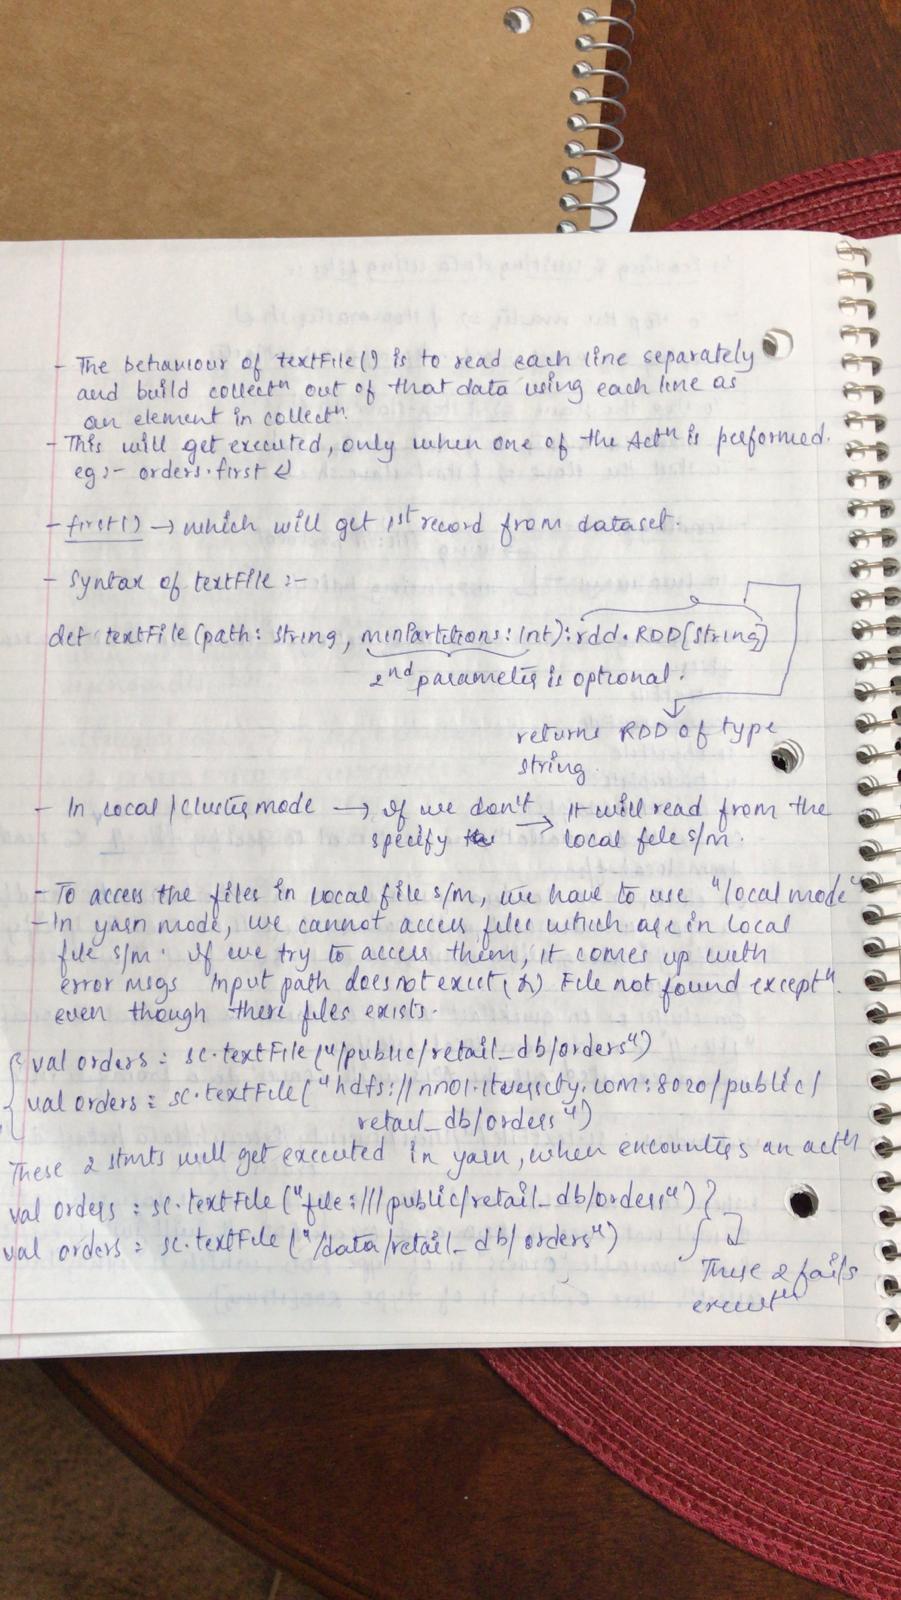 - The behaviour of textFile() is to read each line separately
and build collectⁿ out of that data using each line as
an element in collectⁿ.
- This will get executed, only when one of the Actⁿ is performed.
eg:- orders.first
- first() → which will get 1st record from dataset.
- Syntax of textFile :-
def textFile(path: String, minPartitions: Int): rdd.RDD[String]
2nd parameter is optional.
returns RDD of type
string.
- In Local/Cluster mode → If we don't → It will read from the
specify local file s/m.
- To access the files in local file s/m, we have to use "local mode"
- In yarn mode, we cannot access files which are in local
file s/m. If we try to access them, it comes up with
error msgs Input path does not exist (or) File not found exceptⁿ.
even though there files exists.
val orders = sc.textFile("/public/retail_db/orders")
val orders = sc.textFile("hdfs://nn01.itversity.com:8020/public/
retail_db/orders")
These 2 stmts will get executed in yarn, when encounters an actⁿ
val orders = sc.textFile("file:///public/retail_db/orders")
val orders = sc.textFile("/data/retail_db/orders")
These 2 fails
executⁿ